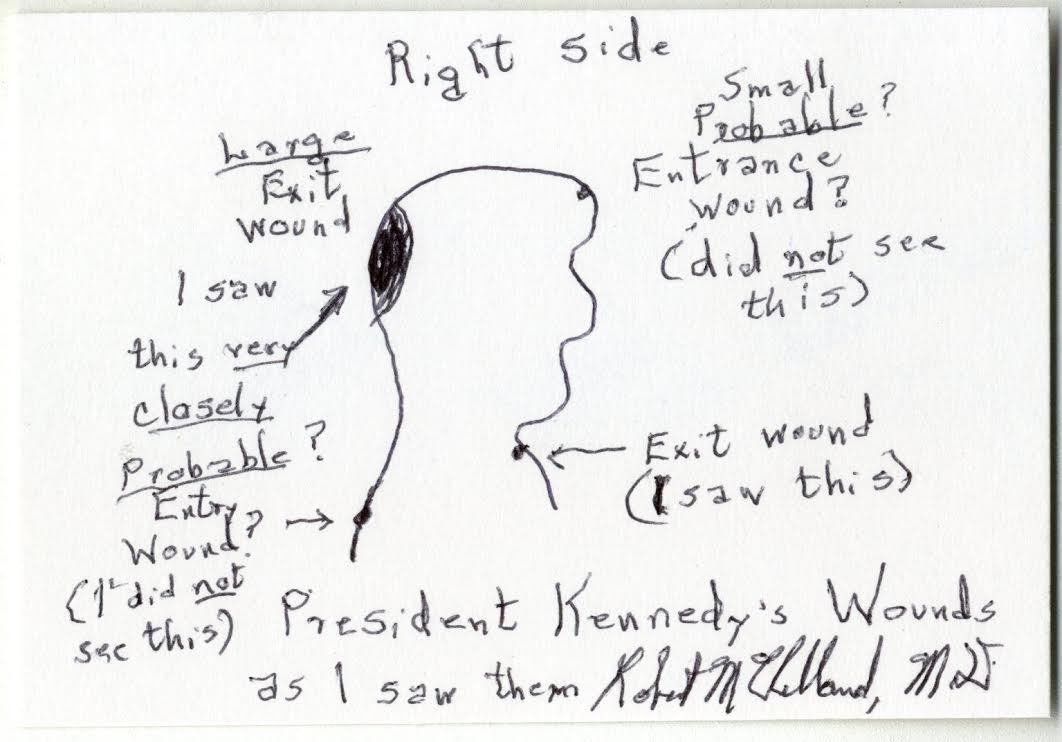 Right side
Large
Exit
wound
I saw
this very
closely
Probable?
Entry
Wound?
(I did not
see this)
Small
Probable?
Entrance
wound?
(did not see
this)
Exit wound
(I saw this)
President Kennedy's Wounds
as I saw them Robert McClelland, M.D.